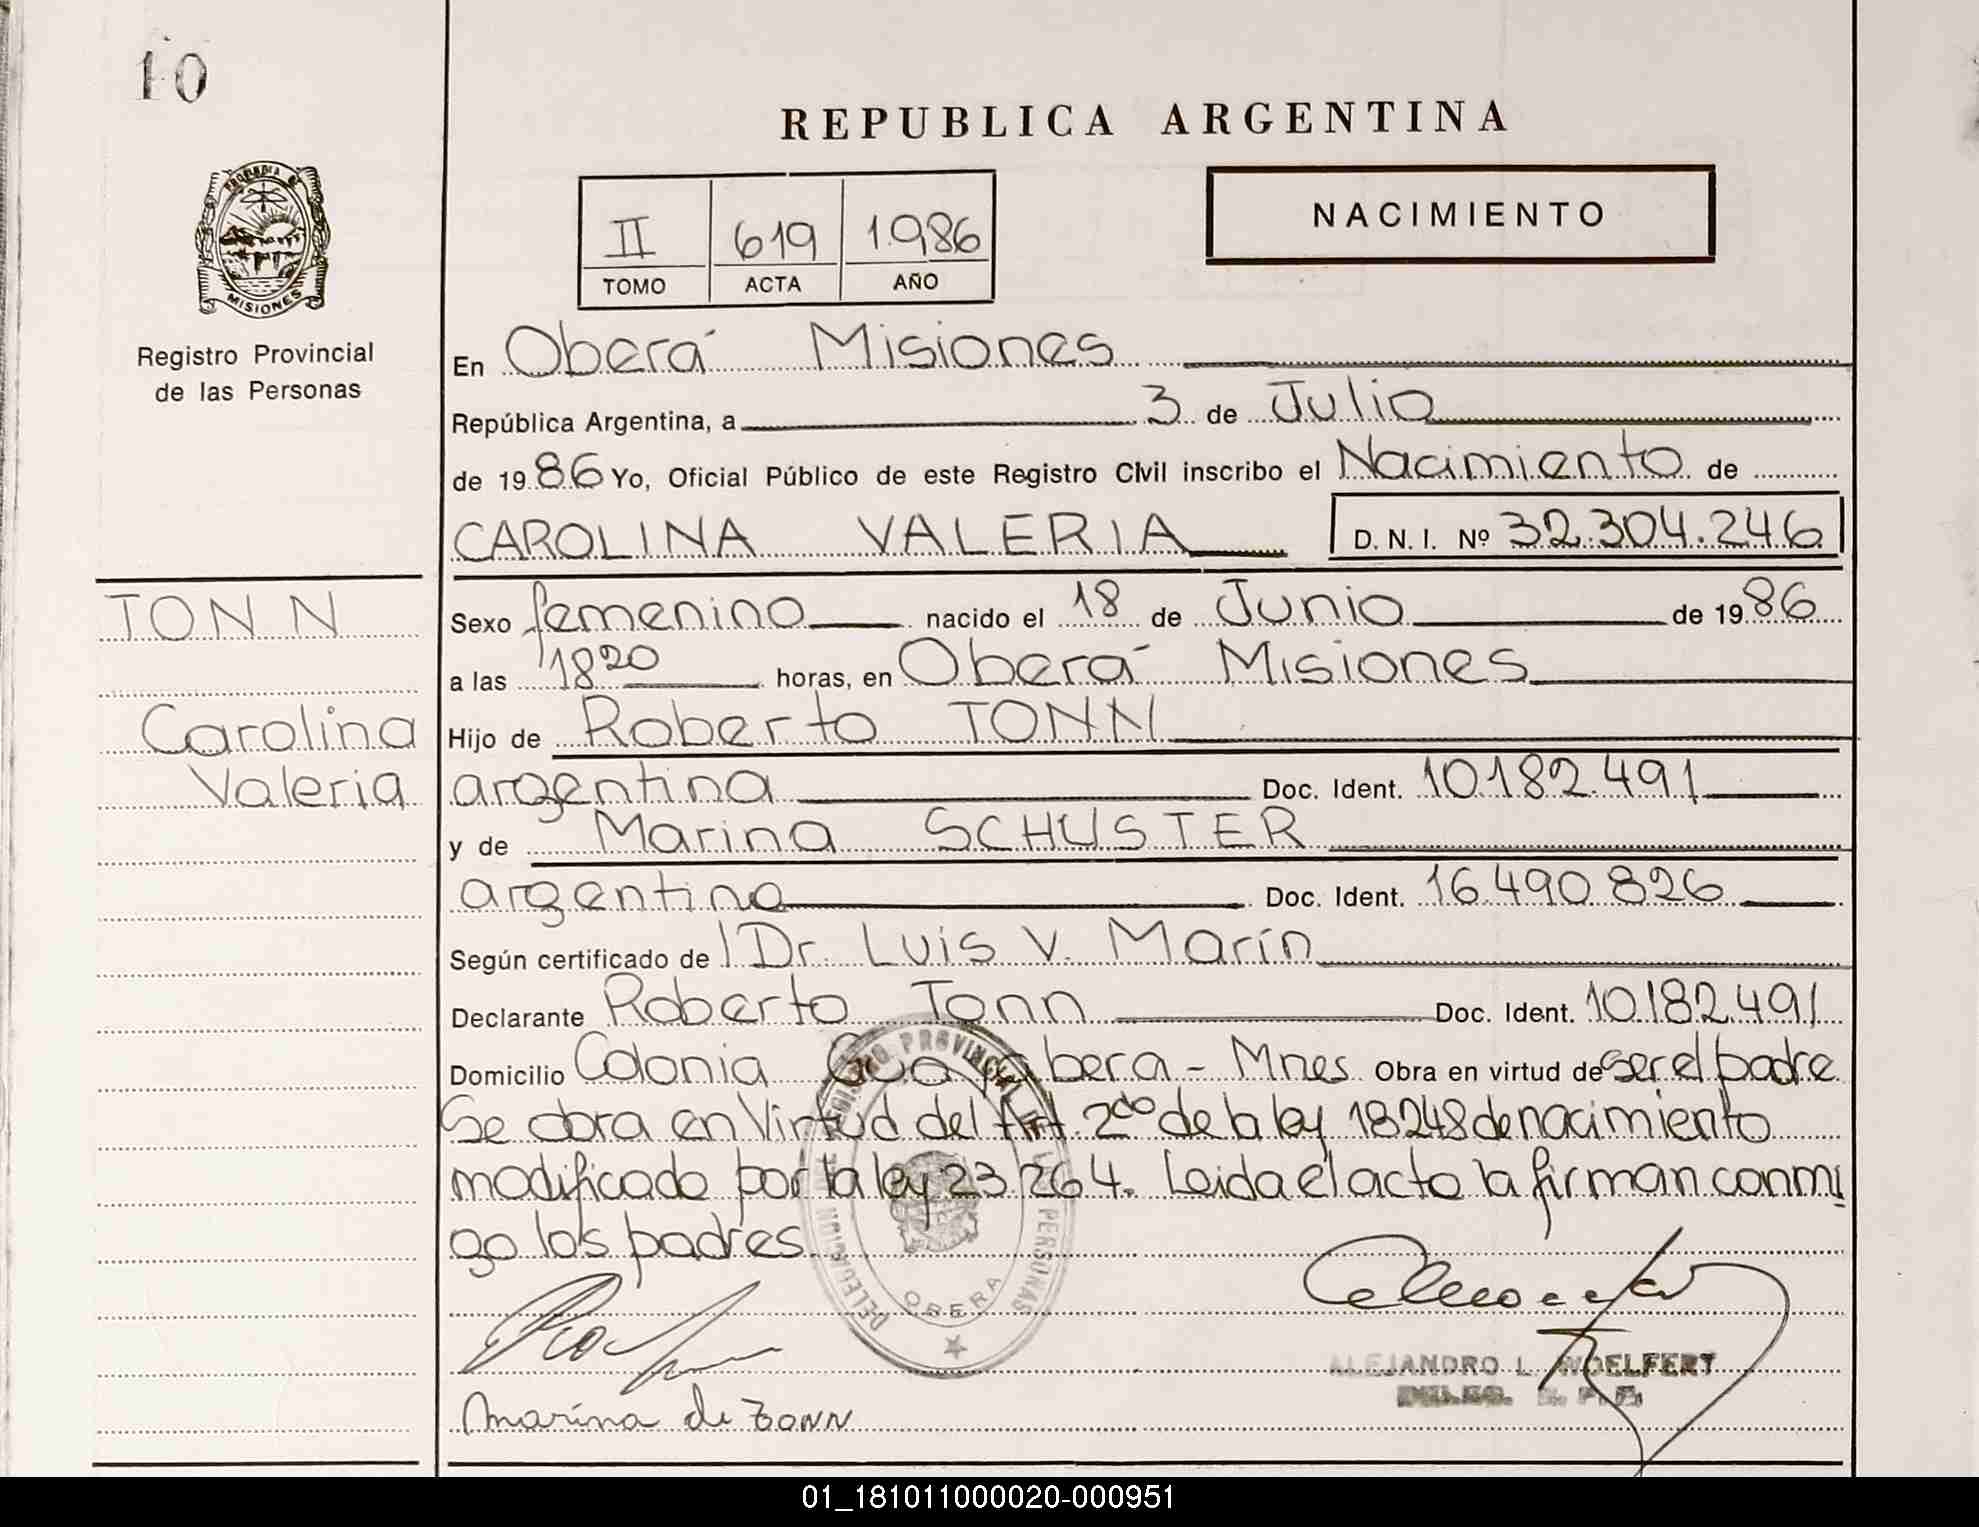 10
REPUBLICA ARGENTINA
II 619 1.986
TOMO ACTA AÑO
NACIMIENTO
PROVINCIA DE
MISIONES
Registro Provincial
de las Personas
En Oberá Misiones
República Argentina, a 3 de Julio
de 1986 Yo, Oficial Público de este Registro Civil inscribo el Nacimiento de
CAROLINA VALERIA D. N. I. Nº 32.304.246
TONN
Carolina
Valeria
Sexo femenino nacido el 18 de Junio de 1986
a las 18 20 horas, en Oberá Misiones
Hijo de Roberto TONN
argentina Doc. Ident. 10.182.491
y de Marina SCHUSTER
argentina Doc. Ident. 16.490.826
Según certificado de Dr. Luis V. Marín
Declarante Roberto Tonn Doc. Ident. 10.182.491
Domicilio Colonia bera - Mnes Obra en virtud de ser el padre
Se obra en Virtud del Art. 2do de la ley 18248 de nacimiento
modificado por la ley 23264. Leida el acto la firman conmi
go los padres.
REGISTRO PROVINCIAL DE LAS PERSONAS
DELEGACION
OBERA
ALEJANDRO L. WOELFERT
Marina de Tonn
01_181011000020-000951